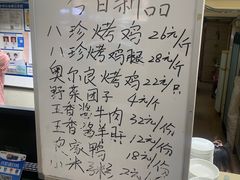 今日新品
八珍烤鸡 26元/斤
八珍烤鸡腿 28元/斤
奥尔良烤鸡 22元/只
野菜团子 4元/个
五香酱牛肉 32元/份
五香酱羊肝 12元/份
鸭 18元/份
小米 22元/份